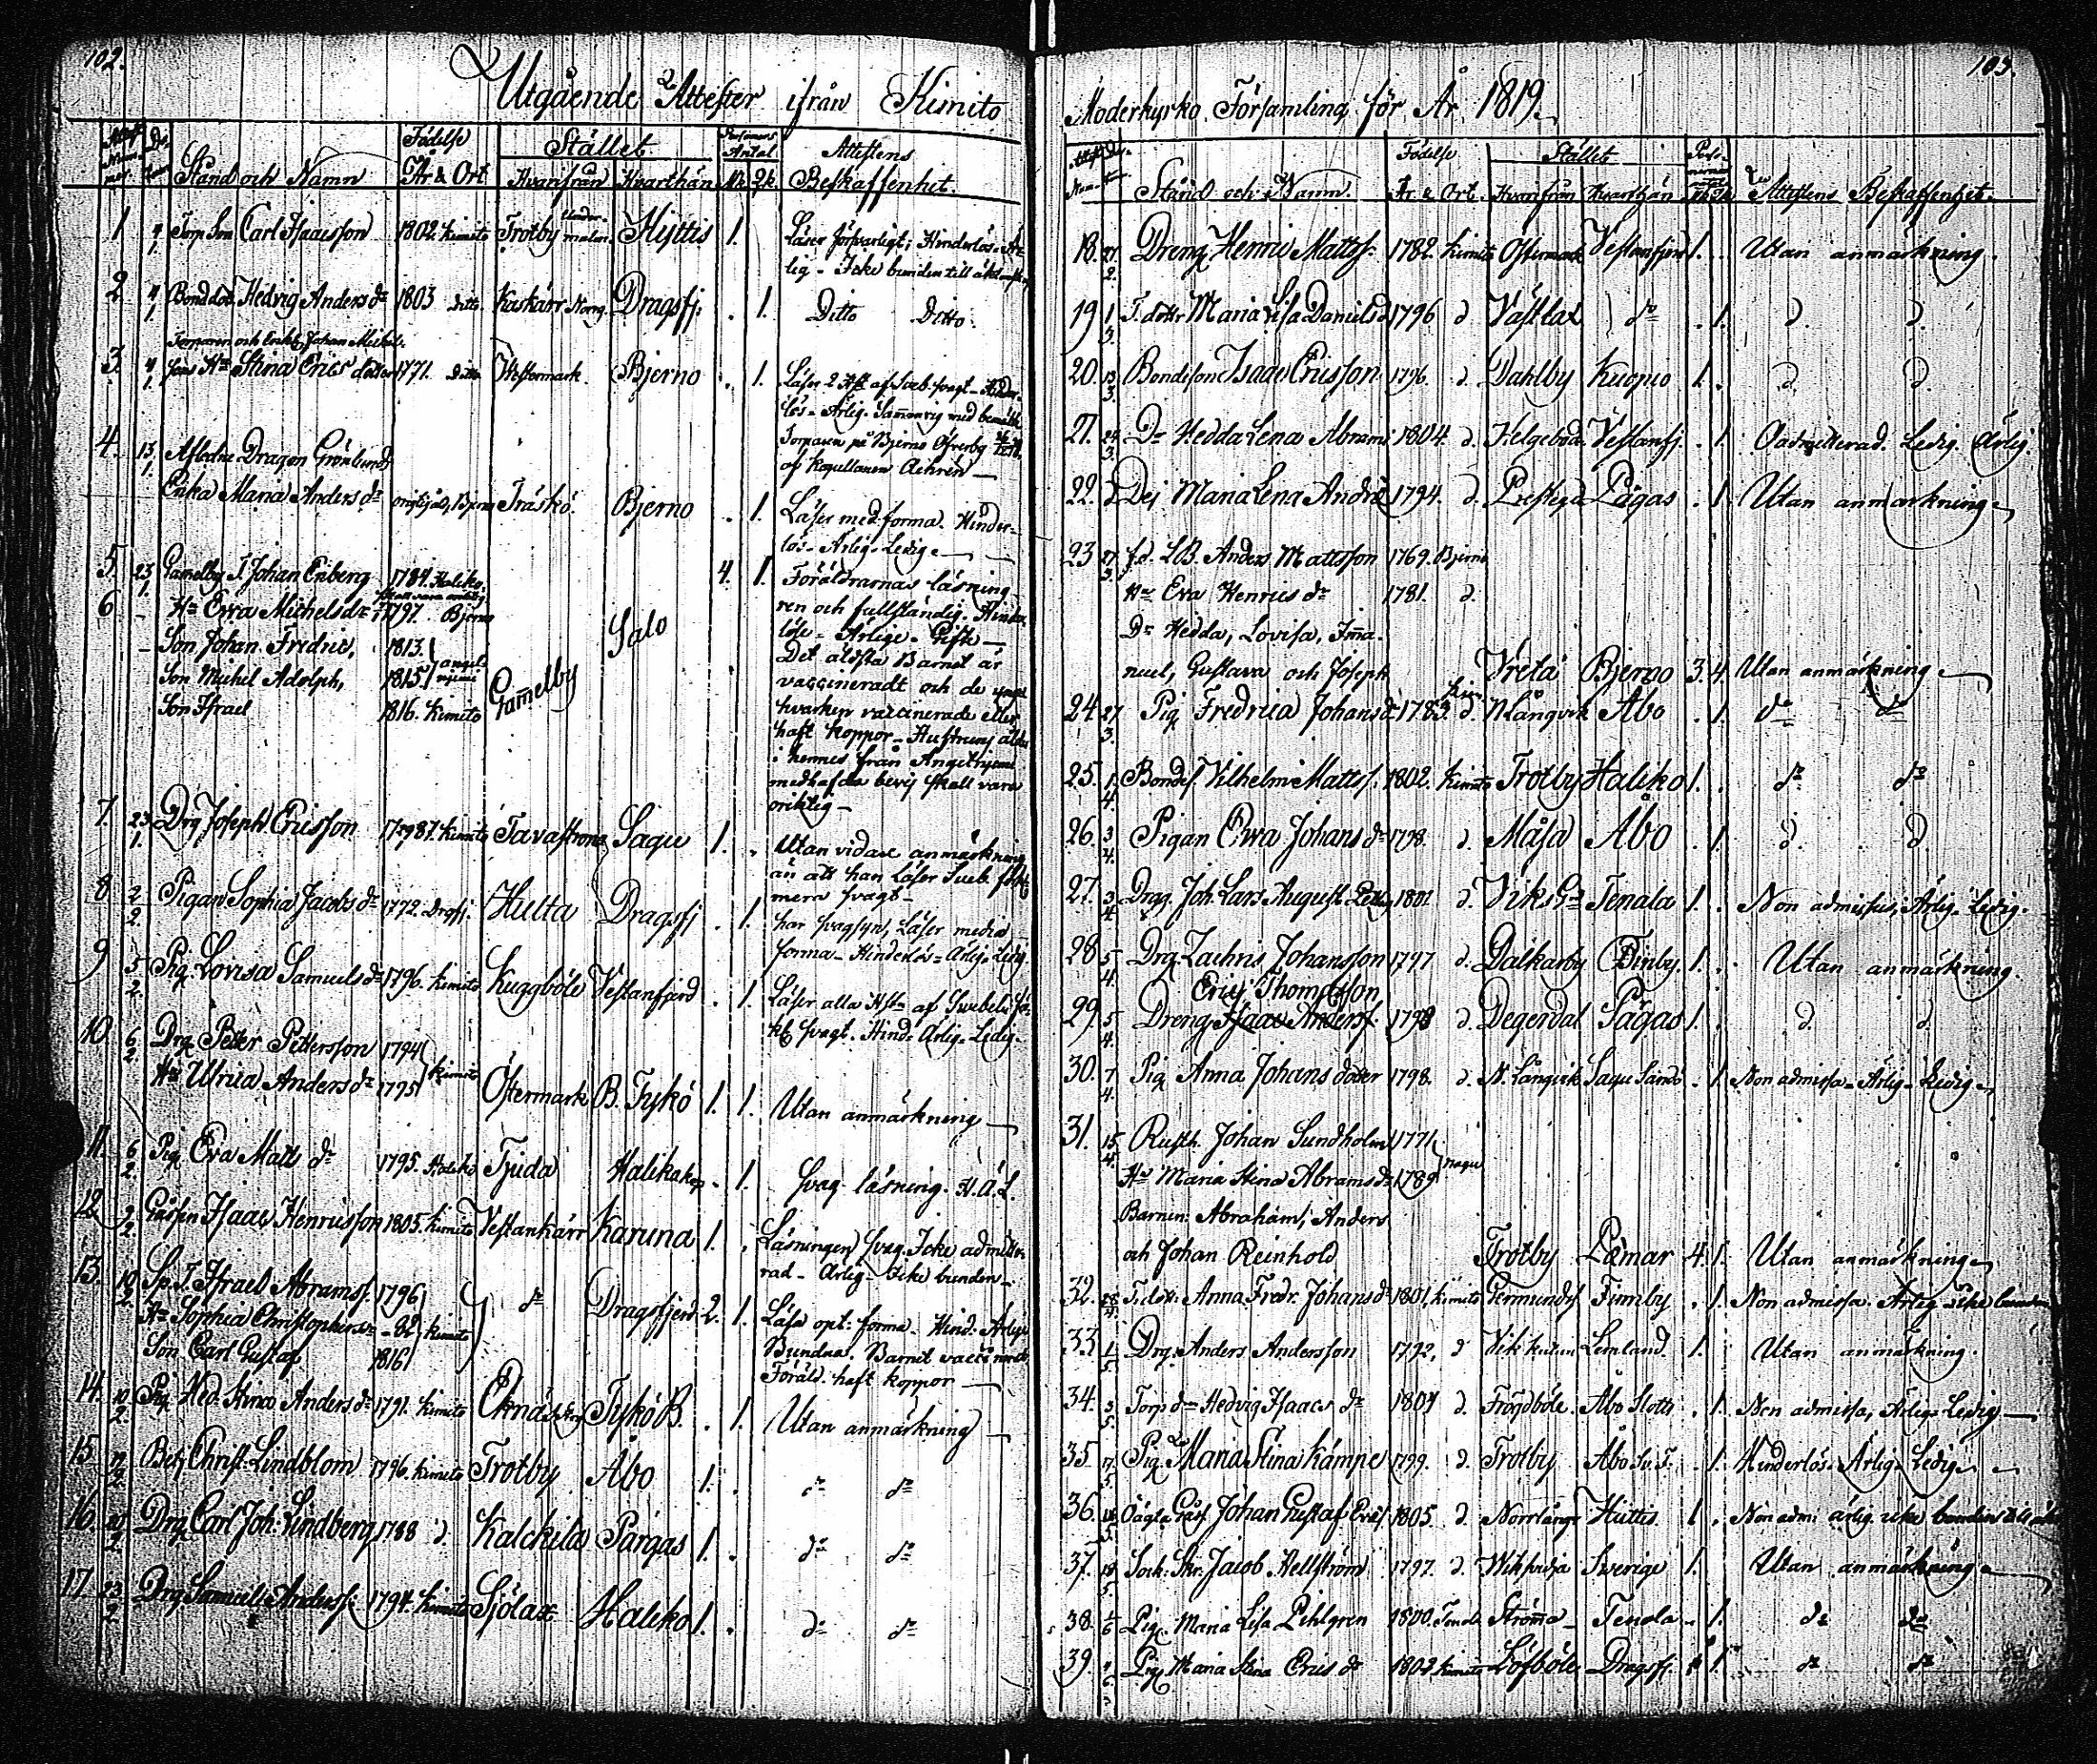 102.
Utgående Attester ifrån Kimito
Stånd och Namn
Födelse År & Ort
Stället
Hvarifrån Hvarthän
Personers Antal
Mk Qk
Attestens Beskaffenhet.
1 4/1 Torp Son Carl Isacsson 1802 Kimito Trotby Hijttis 1.
Läser försvarligt; Hinderlös. Är-
lig. Icke bunden till äktenskap
2 4/1 Bonddot. Hedvig Anders dr 1803 ditto. Kaskärr Norrg. Dragsfj: . 1. Ditto Ditto.
Torparen och Enkl. Johan Michels-
3 4/1 sons Hu Stina Erics dotter 1771. Ditto Westermark Bjerno . 1.
Läser 2 Hst af Sveb. svagt - Hinder-
lös - Ärlig. Sammanvig med bemälte
Torparen på Bjerno Öfverby
af Kapellanen Aehren -
4. 13/1 Afledne Dragon Grönlunds
Enka Maria Anders dr Bjerno Träskö. Bjerno . 1.
Läser med: forma. Hinder-
lös - Ärlig. Ledig -
5. 23/1 Gamelby T. Johan Enberg 1784. Haliko 4. 1.
6 Hu Ewa Michelsdr 1797. Bjerno Salo
Son Johan Fredric, 1813.
Son Michel Adolph, 1815
Son Israel 1816. Kimito Gamelby
Föräldrarnas läsning
ren och fullständig. Hinder-
löse - Ärlige. Gifte -
Det äldsta Barnet är
vaccineradt och de yngre
hvarken vaccinerade eller
haft koppor - Hustruns ålder
i hennes från Angelniemi
medhafda bevis skall vara
oriktig -
7. 23/1 Drg Joseph Ericsson 1787. Kimito Tavastrona Sagu 1. .
Utan vidare anmärkning
än att han Läser Sveb. för-
mera svagt -
8 2/2 Pigan Sophia Jacobs dr 1772. Dragsfj. Hulta Dragsfj . 1.
har svag syn, Läser media
forma - Hinderlös - Ärlig. Ledig
9 5/2 Pig. Lovisa Samuels dr 1796. Kimito Kuggböle Vestanfjerd . 1.
Läser alla Hst af Swebeli
svagt. Hind. Ärlig. Ledig.
10 6/2 Drg Petter Pettersson 1794
Hu Ulrica Anders dr 1795 Kimito Östermark B. Tykö 1. 1. Utan anmärkning -
11. 6/2 Pig Eva Matts dr 1795. Haliko Tjuda Halikakap. . 1. Svag läsning. H. Ä. L.
12 9/2 Gåssen Isaac Henricsson 1805. Kimito Vestankärr Karuna 1. .
Läsningen svag. Icke admitte-
rad - Ärlig - Icke bunden -
13. 10/2 Sp. T. Israel Abramss. 1796
Hu Sophia Christophersdr - 92 Kimito dr Dragsfjerd 2. 1.
Son Carl Gustaf 1816
Läsa opt: forma - Hind: Ärlige
Bundna. Barnet vaccinerat
Föräld. haft koppor -
14. 10/2 Pig. Hed. Stina Anders dr 1791. Kimito Eknäs Tykö B. . 1. Utan anmärkning -
15 17/2 Betj Christ. Lindblom 1796. Kimito Trotby Åbo 1. . dr dr
16. 20/2 Drg Carl Joh: Lindberg 1788 d. Kalckila Pargas 1. . dr dr
17. 23/2 Drg Samuell Anderss: 1794. Kimito Sjölax Haliko 1. . dr dr
103.
Moderkyrko Församling för År 1819.
Stånd och Namn.
Födelse År & Ort.
Stället
Hvarifrån Hvarthän
Attestens Beskaffenhet.
18. 27/2 Dreng Henric Mattss: 1782. Kimito Östermark Vestanfjerd 1. Utan anmärkning.
19 1/3 T. dottr Maria Lisa Daniels dr 1796 d Västlax dr . 1. d. d.
20. 13/3 Bondeson Isaac Ericsson 1796. d. Dahlby Kuopio 1. . d. d
21. 24/3 Dr Hedda Lena Abrams 1804. d. Helgeboda Vestanfj. . 1. Oadmitterad. Ledig. Ärlig.
22. Dej Maria Lena Andr. 1794. d. Prestegd Pargas . 1. Utan anmärkning -
23 27/3 f.d. LB. Anders Mattsson 1769. Bjerno
Hu Eva Henrics dr 1781. d.
Dr Hedda, Lovisa, Ima-
nuel, Gustava och Joseph Vreta Bjerno 3. 4. Utan anmärkning -
24. 27/3 Pig Fredrica Johans dr 1783. d. N Långvik Åbo . 1. dr dr
25. 1/4 Bondes. Vilhelm Mattss. 1802. Kimito Trotby Haliko 1. . dr dr
26. 3/4 Pigan Ewa Johans dr 1798. d Måsa Åbo . 1. d. d
27. 3/4 Dragg. Joh. Lars August 1801. d. Viks Gd Tenala 1. . Non admissus, Ärlig. Ledig.
28 5/4 Drg Zachris Johansson 1797 d. Dalkarby Finby. 1. . Utan anmärkning.
Eric Thomasson
29. 5/4 Dreng Isaac Anderss. 1798 d. Degerdal Pargas 1. . d. d
30. 7/4 Pig Anna Johans dotter 1798. d. N. Långvik Sagu Sandö . 1. Non admissa - Ärlig - Ledig -
31. 15/4 Rusth. Johan Sundholm 1771
Hu Maria Stina Abrams dr 1789 Nagu
Barnen: Abraham, Anders
och Johan Reinhold Trotby Pämar 4. 1. Utan anmärkning -
32. T. dotr Anna Fredr. Johans dr 1801, Kimito Germundsf Fimby . 1. Non admissa. Ärlig icke bunden
33. 1/5 Drg. Anders Andersson 1792, d Vik Lemland. 1. Utan anmärkning.
34. 3/5 Torp dr Hedvig Isaacs dr 1801 d. Fröjdböle. Åbo Slotts . 1. Non admissa, Ärlig. Ledig -
35 17/5 Pig Maria Stina Kämpe 1799. d. Trotby Åbo Sv. F. . 1. Hinderlös. Ärlig. Ledig -
36. Johan Gustaf Ericss. 1805. d. Norrlångv Hiittis 1 . Non adm: ärlig. icke bunden till äkt
37. Sock: Skr. Jacob Hellström 1797. d. Sverige 1. Utan anmärkning -
38. 1/6 Pig. Maria Lisa Pihlgren 1800. Tenala Ströma - Tenala . 1. dr dr
39. Pig Maria Stina Erics dr 1802 Kimito Löfböle Dragsfj. 1. dr dr